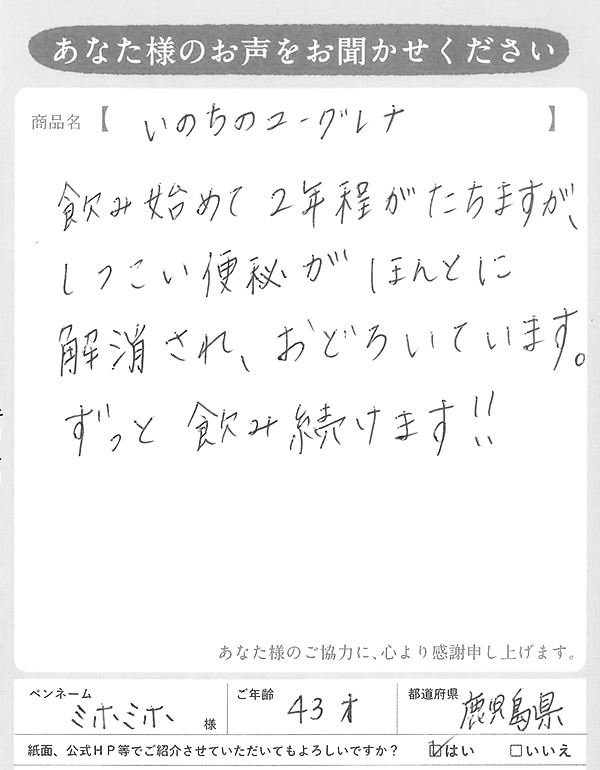 あなた様のお声をお聞かせください
商品名【 いのちのユーグレナ 】
飲み始めて2年程がたちますが、
しつこい便秘がほんとに
解消され、おどろいています。
ずっと飲み続けます!!
あなた様のご協力に、心より感謝申し上げます。
ペンネーム ミホミホ 様 ご年齢 43才 都道府県 鹿児島県
紙面、公式HP等でご紹介させていただいてもよろしいですか? ☑はい □いいえ